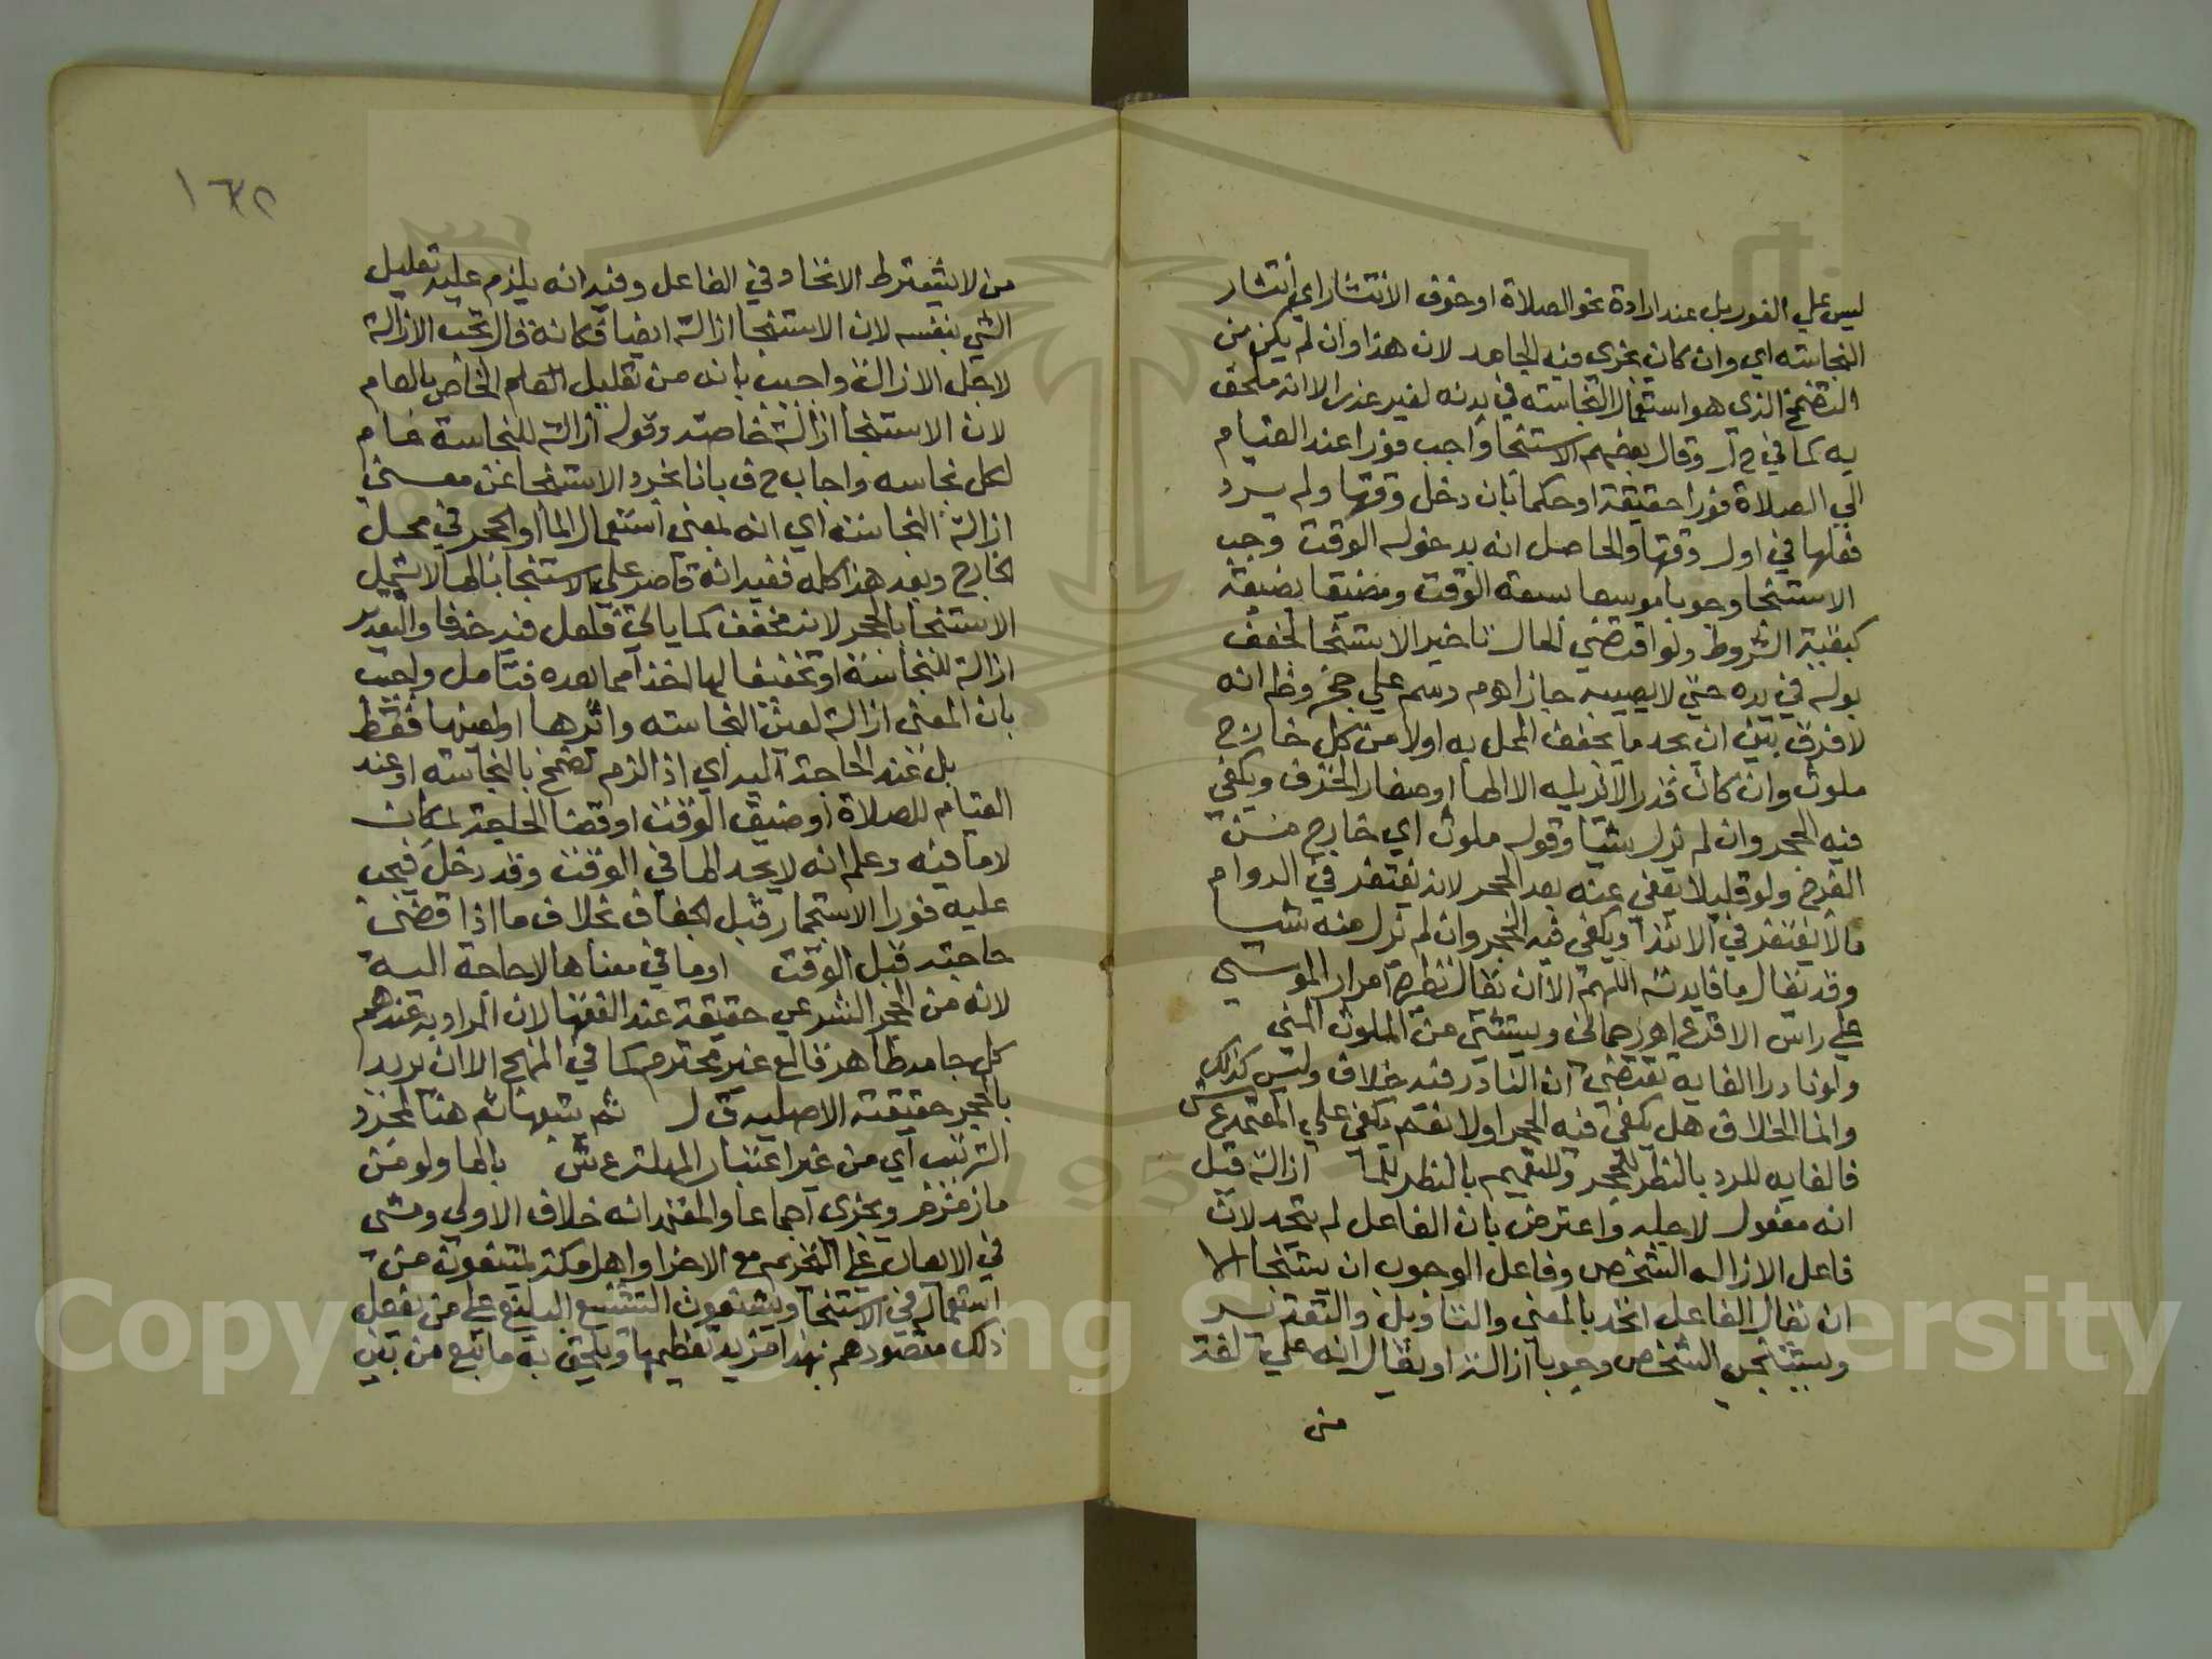 ليس علي الفور بل عند ارادة نحو الصلاة او خوف الانتشار اي انتشار
النجاسه اي وان كان يجزي فيه الجامد لان هذا وان لم يكن من
التضمخ الذي هو استعمال النجاسه في بدنه لغير عذر الا انه ملحق
به كما في م ر وقال بعضهم الاستنجا واجب فورا عند القيام
الي الصلاة فورا حقيقة او حكما بان دخل وقتها ولم يرد
فعلها في اول وقتها والحاصل انه بدخول الوقت وجب
الاستنجا وجوبا موسعا بسعة الوقت ومضيقا بضيقه
كبقية الشروط ولو اقتضي الحال تاخير الاستنجا فجفف
بوله في يده حتي لا يصيبه جاز اهم ر سم علي حج وظ انه
لا فرق بين ان يجد ما يجفف المحل به اولا من كل خارج
ملوث وان كان قدرا لا يزيله الا الما او صغار الخزف ويكفي
فيه الحجر وان لم يزل شيئا وقوله ملوث اي خارج من
الفرج ولو قليلا يعفي عنه بعد الحجر لانه يغتفر في الدوام
ما لا يغتفر في الابتدا ويكفي فيه الحجر وان لم يزل منه شيا
وقد يقال ما فايدته اللهم الا ان يقال نظيره امرار الموسي
علي راس الاقرع اهرحماني ويستثني من الملوث المني
ولو نادرا الغايه تقتضي ان النادر فيه خلاف وليس كذلك
وانما الخلاف هل يكفي فيه الحجر اولا نعم يكفي علي المعتمد ع ش
فالغايه للرد بالنظر للحجر وللتعميم بالنظر للما ازالة قيل
انه مفعول لاجله واعترض بان الفاعل لم يتحد لان
فاعل الازاله الشخص وفاعل الوجوب ان يستنجا الا
ان يقال الفاعل اتحد بالمعني والتاويل والتقدير
ويستنجي الشخص وجوبا ازالة او يقال انه علي لغة
من
١٦٥
من لا يشترط الاتحاد في الفاعل وفيه انه يلزم عليه تعليل
الشي بنفسه لان الاستنجا ازالة ايضا فكانه قال تجب الازالة
لاجل الازالة واجيب بانه من تعليل الخاص بالعام
لان الاستنجا ازالة خاصة وقوله ازالة للنجاسة عام
لكل نجاسه واجاب ح ف بانا نجرد الاستنجا عن معني
ازالة النجاسة اي انه بمعني استعمال الما او الحجر في محل
الخارج وبعد هذا كله ففيه انه قاصر علي الاستنجا بالما لا يشمل
الاستنجا بالحجر لانه مخفف كما ياتي فلعل فيه حذفا والتقدير
ازالة للنجاسة او تخفيفا لها اخذا مما بعده فتامل واجيب
بان المعني ازالة لعين النجاسه واثرها او لعينها فقط
بل عند الحاجة اليه اي اذا لزم تضمخ بالنجاسه او عند
القيام للصلاة او ضيق الوقت او قضا الحاجة بمكان
لا ما فيه وعلم انه لا يجد الما في الوقت وقد دخل فيجب
عليه فورا الاستجمار قبل الجفاف بخلاف ما اذا قضي
حاجته قبل الوقت او ما في معناها لا حاجة اليه
لانه من الحجر الشرعي حقيقة عند الفقها لان المراد به عندهم
كل جامد طاهر قالع غير محترم كما في المنهج الا ان يريد
بالحجر حقيقته الاصليه ق ل ثم يتبعها ثم هنا لمجرد
الترتيب اي من غير اعتبار المهلة ع ش بالما ولو من
ما زمزم ويجزي اجماعا والمعتمد انه خلاف الاولي ومشي
في الايعاب علي التحريم مع الاجزا واهل مكة يمتنعون من
استعماله في الاستنجا ويشنعون التشنيع البليغ علي من يفعل
ذلك مقصودهم بهذا مزيد تعظيمها ويلحق به ما نبع من بين